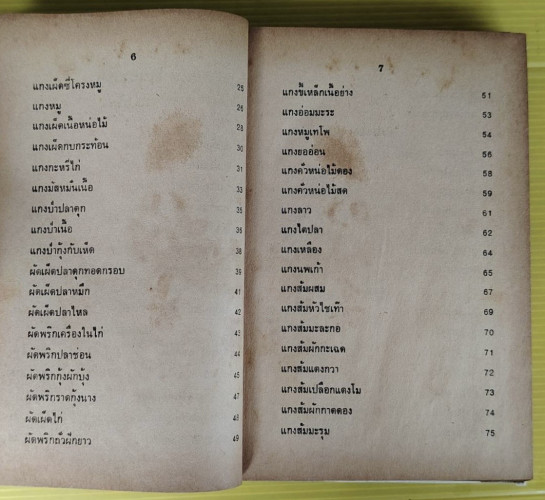 6
แกงเผ็ดซี่โครงหมู 25
แกงหมู 26
แกงเผ็ดเนื้อหน่อไม้ 28
แกงเผ็ดกบกระท้อน 30
แกงกะหรี่ไก่ 31
แกงมัสหมั่นเนื้อ 33
แกงป่าปลาดุก 35
แกงป่าเนื้อ 36
แกงป่ากุ้งกับเห็ด 38
ผัดเผ็ดปลาดุกทอดกรอบ 39
ผัดเผ็ดปลาหมึก 41
ผัดเผ็ดปลาไหล 42
ผัดพริกเครื่องในไก่ 43
ผัดพริกปลาช่อน 44
ผัดพริกกุ้งผักบุ้ง 45
ผัดพริกราดกุ้งนาง 47
ผัดเผ็ดไก่ 48
ผัดพริกถั่วฝักยาว 49
7
แกงขี้เหล็กเนื้อย่าง 51
แกงอ่อมมะระ 53
แกงหมูเทโพ 54
แกงยออ่อน 56
แกงคั่วหน่อไม้ดอง 58
แกงคั่วหน่อไม้สด 59
แกงลาว 61
แกงไตปลา 62
แกงเหลือง 64
แกงนพเก้า 65
แกงส้มผสม 67
แกงส้มหัวไชเท้า 69
แกงส้มมะละกอ 70
แกงส้มผักกะเฉด 71
แกงส้มแตงกวา 72
แกงส้มเปลือกแตงโม 73
แกงส้มผักกาดดอง 74
แกงส้มมะรุม 75